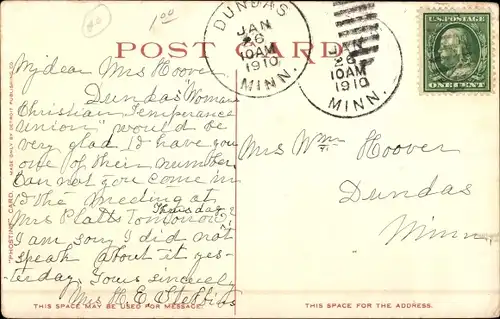 1.00
POST CARD
DUNDAS
JAN
26
10AM
1910
MINN.
JAN
26
10AM
1910
MINN.
U.S. POSTAGE
ONE CENT
My dear Mrs Hoover,
Dundas "Woman
Christian Temperance
Union" would be
very glad to have you
one of their number
Can not you come in
to the meeting at
Mrs Platts Tomorrow?
Thursday
I am sorry I did not
speak about it yes-
terday. Yours sincerely
Mrs H. E. Stebbins
Mrs Wm Hoover
Dundas
Minn
"PHOSTINT" CARD. MADE ONLY BY DETROIT PUBLISHING CO.
THIS SPACE MAY BE USED FOR MESSAGE.
THIS SPACE FOR THE ADDRESS.